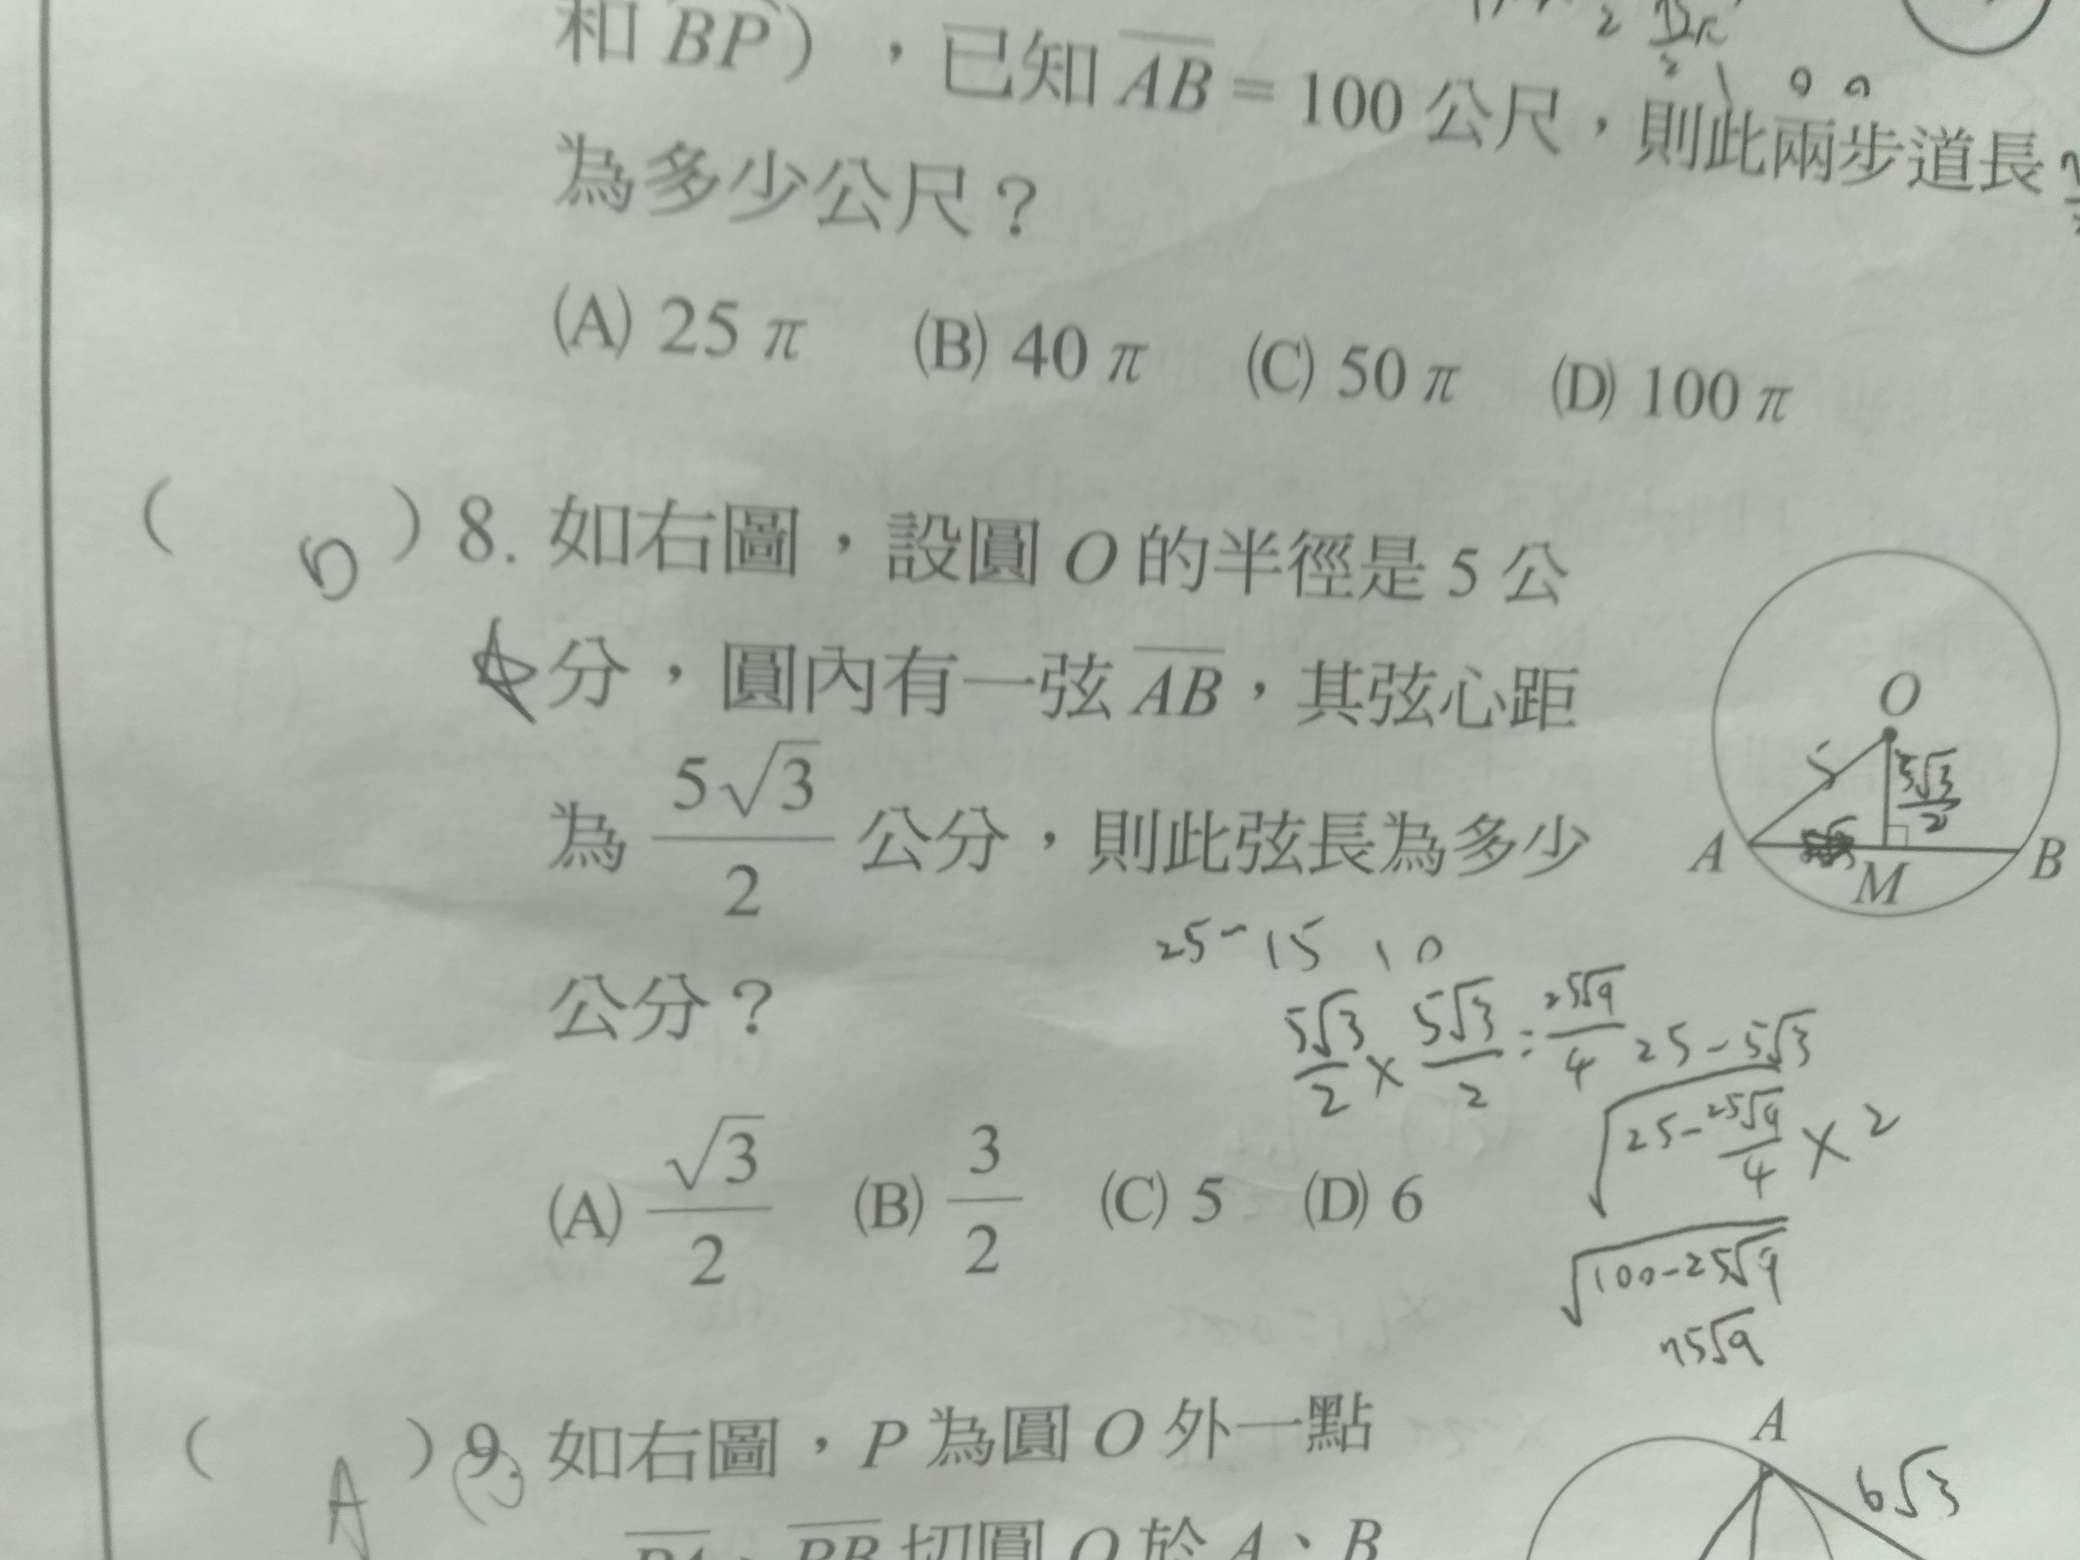 和 BP），已知 AB = 100 公尺，則此兩步道長
為多少公尺？
(A) 25 π (B) 40 π (C) 50 π (D) 100 π
( ) 8. 如右圖，設圓 O 的半徑是 5 公
分，圓內有一弦 AB，其弦心距
為 5√3/2 公分，則此弦長為多少
公分？
(A) √3/2 (B) 3/2 (C) 5 (D) 6
O
5
5√3/2
A
M
B
25-15 10
5√3/2 × 5√3/2 = 25√9/4
25-5√3
√(25-25√9/4) × 2
√(100-25√9)
75√9
( A ) 9. 如右圖，P 為圓 O 外一點
PA、PB 切圓 O 於 A、B
A
6√3